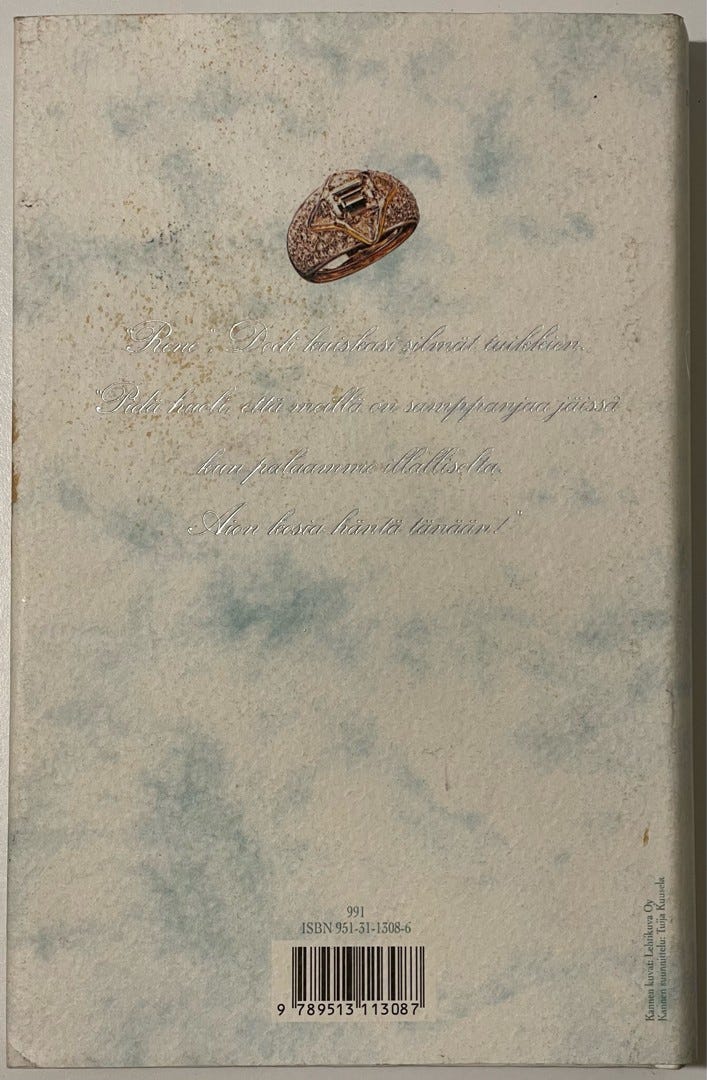 "René", Dodi kuiskasi silmät tuikkien.
"Pidä huoli, että meillä on samppanjaa jäissä
kun palaamme illalliselta.
Aion kosia häntä tänään!"
991
ISBN 951-31-1308-6
9 789513 113087
Kannen kuvat: Lehtikuva Oy
Kannen suunnittelu: Tuija Kuusela